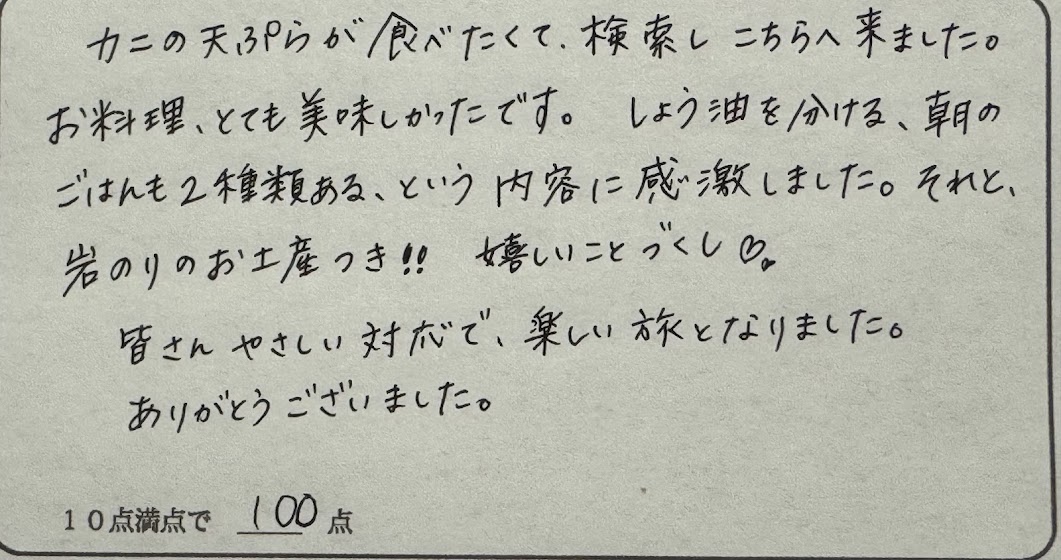 カニの天ぷらが食べたくて、検索しこちらへ来ました。
お料理、とても美味しかったです。 しょう油を分ける、朝の
ごはんも2種類ある、という内容に感激しました。それと、
岩のりのお土産つき!! 嬉しいことづくし♡。
皆さんやさしい対応で、楽しい旅となりました。
ありがとうございました。
10点満点で 100 点